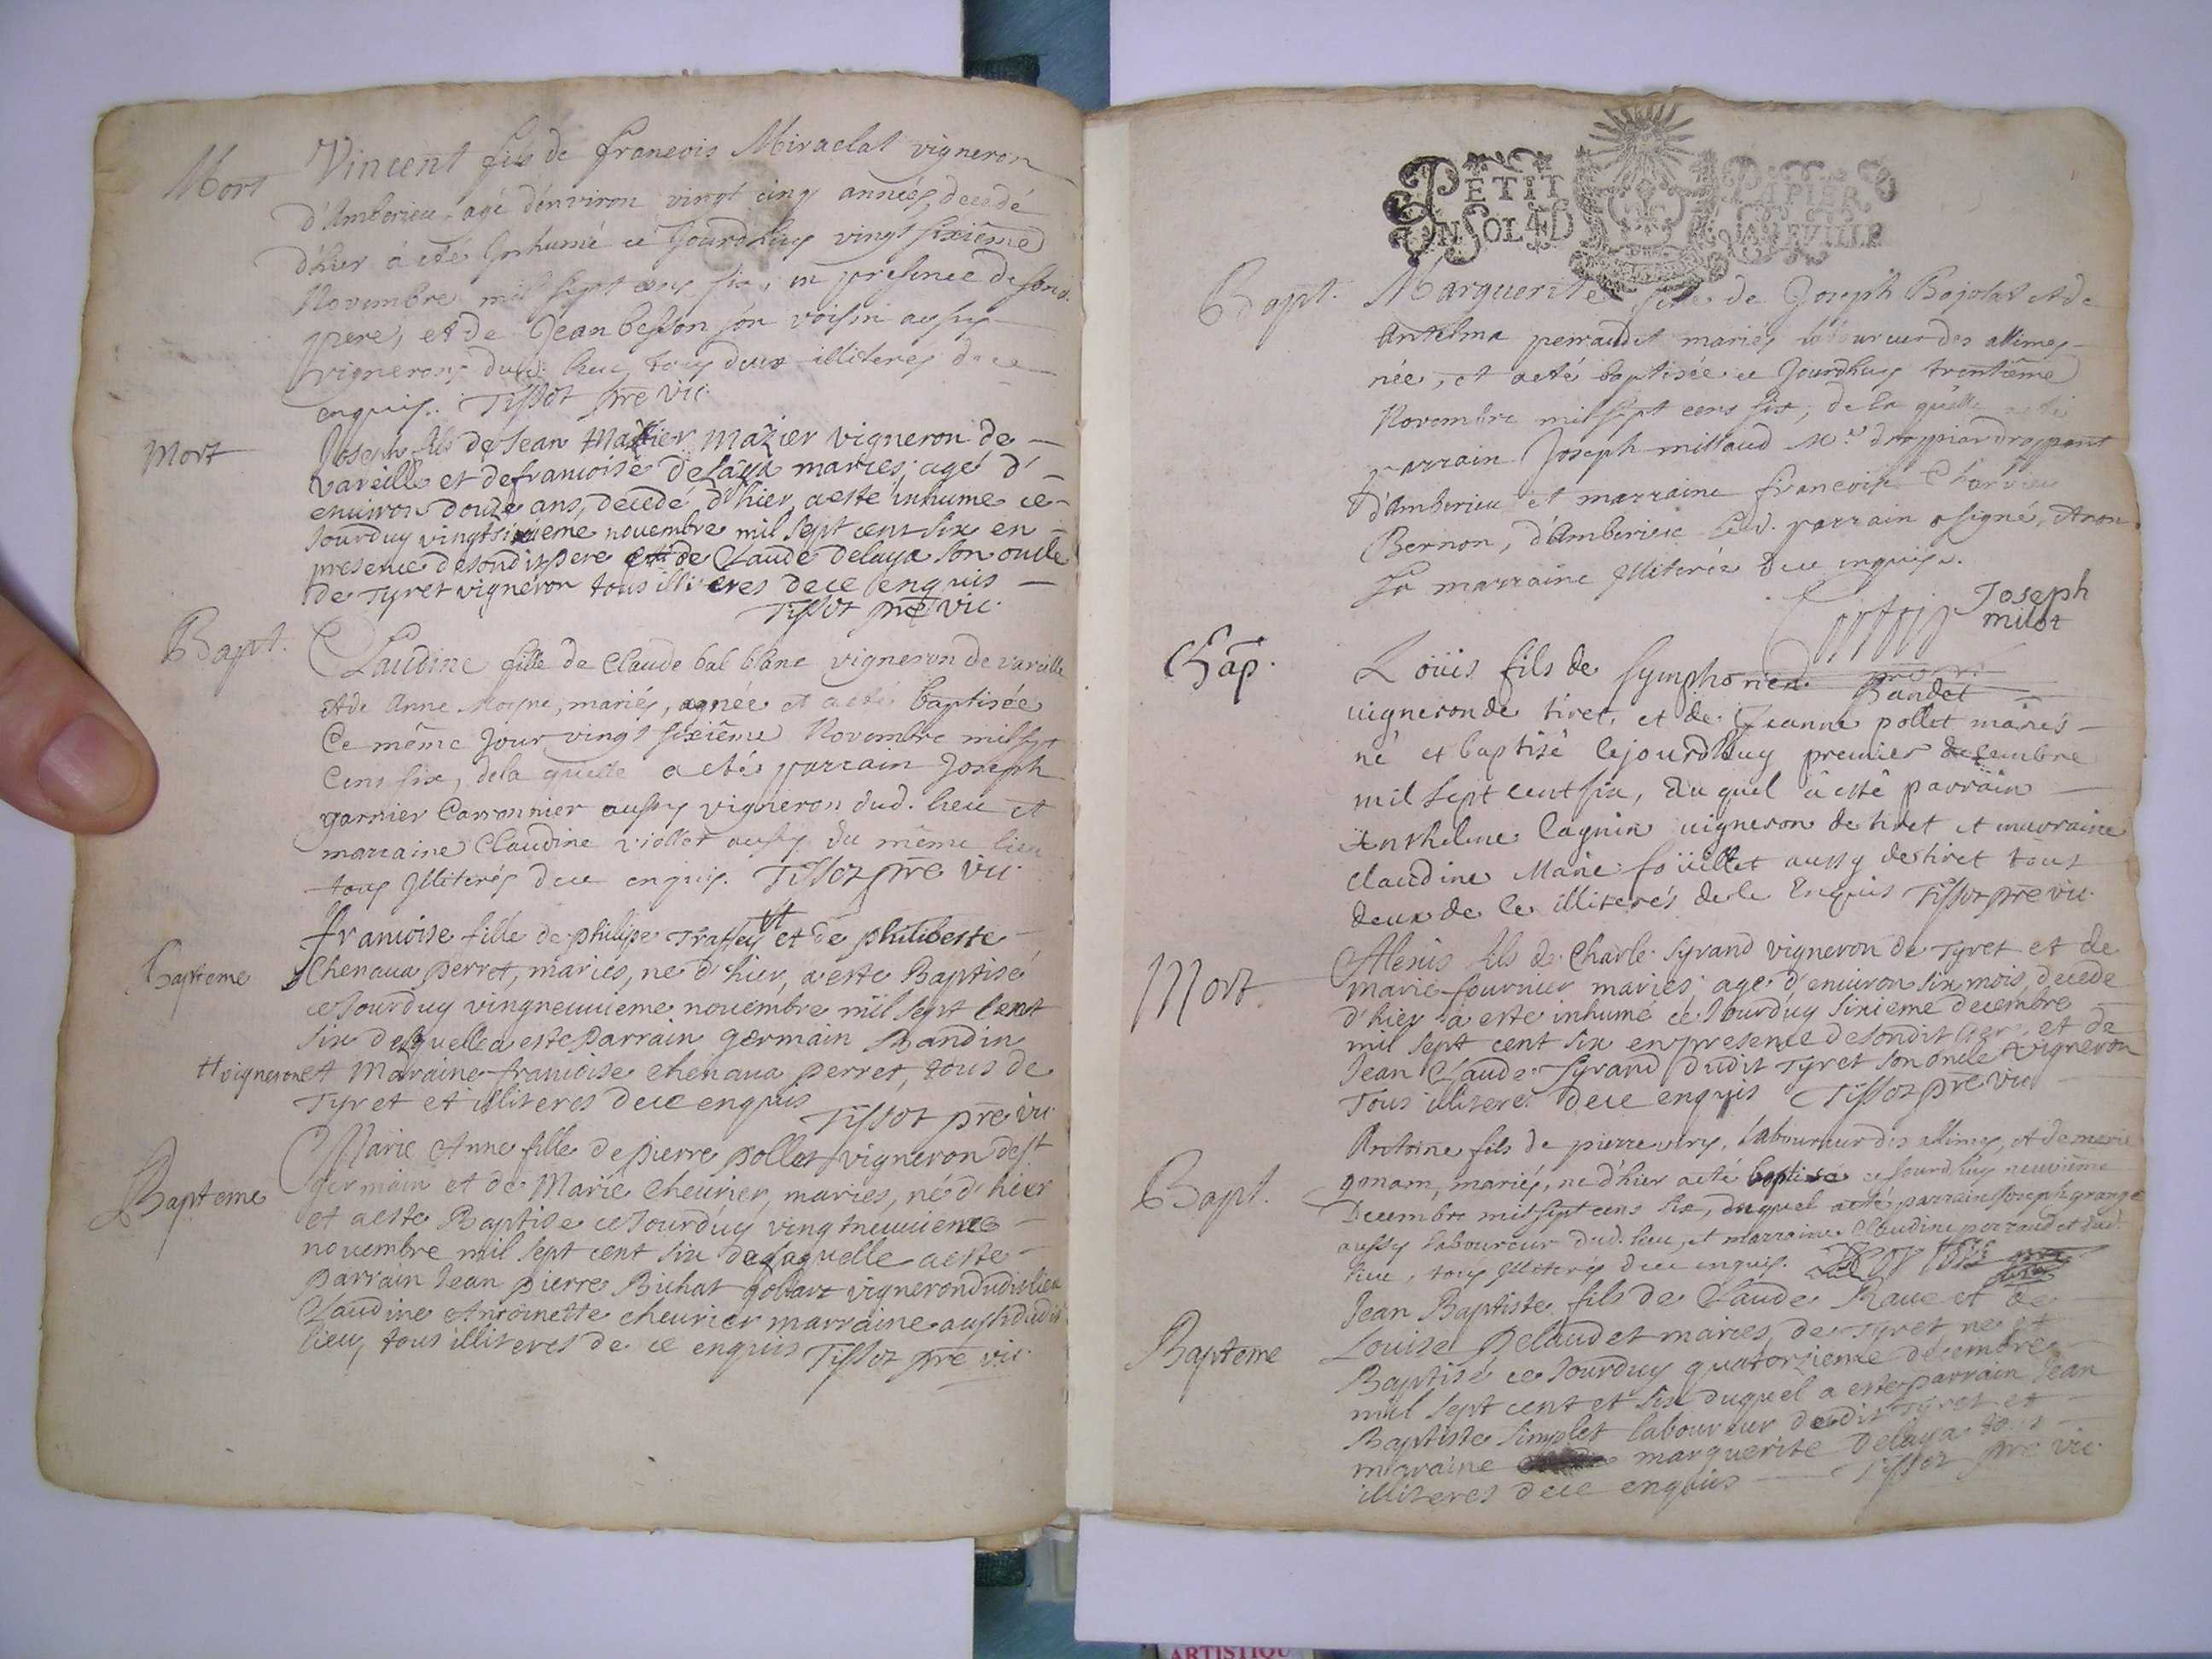 Mort
Vincent fils de francois Miraclat vigneron
d'Amberieu agé d'environ vingt cinq années, decedé
d'hier a eté Inhumé ce Jourdhuy vingt sixiême
Novembre mil sept cens six, en presence de sond.
pere, et de Jean besson son voisin aussy
vignerons dud. lieu, tous deux illiteres de ce
enquis. Tissot pre vic.
Mort
Joseph fils de Jean Mazier vigneron de
vareille et de francoise Delaya maries; agé d'
environ douze ans, decedé d'hier, a esté inhumé ce
Jourduy vingtsixieme novembre mil sept cent six en
presence desondit pere et de Claude Delaya son oncle
de Tyret vigneron tous illiteres de ce enquis
Tissot pre vic.
Bapt.
Claudine fille de Claude bal blanc vigneron de vareille
et de Anne Moyne, mariés, née et a eté baptisée
Ce même Jour vingt sixiême Novembre mil sept
Cens six, de la quelle a eté parrain Joseph
garnier Carronnier aussy vigneron dud. lieu et
marraine Claudine viollet aussy du même lieu
tous Illiterés de ce enquis. Tissot pre vic.
Bapteme
francoise fille de philipe Traffey et de philiberte
Chenaua perret, maries, ne d'hier, a este Baptisé
ce Jourduy vingneuuieme nouembre mil sept cent
six de laquelle a este parrain germain Bandin
tt vigneron et Maraine francoise chenaua perret, tous de
Tyret et illiteres de ce enquis
Tissot pre vic.
Bapteme
Marie Anne fille de pierre pollet vigneron de st
germain et de Marie cheurier, maries, né d'hier
et a este Baptise ce Jourduy vingtneuuieme
nouembre mil sept cent six de laquelle a este
parrain Jean pierre Bichat vigneron dudit lieu
Claudine Antoinette cheurier marraine aussi dudit
lieu, tous illiteres de ce enquis Tissot pre vic.
PETIT PAPIER
UN SOL 4D LA FEVILLE
Bapt.
Marguerite fille de Joseph Bojolat et de
Antelma perraudet mariés laboureur des allimes
née, et a eté baptisée ce Jourdhuy trentiême
Novembre mil sept cens six, de la quelle a eté
parrain Joseph millaud Mre drappiar drappant
d'Amberieu et marraine francoise Charvieu
Bernon, d'Amberieu led. parrain a signé, et non
la marraine Illiterée de ce enquise.
Joseph
milot
Bap.
Loüis fils de Symphorien Bandet
uigneron de tiret, et de Jeanne pollet mariés
né et baptisé cejourdhuy premier decembre
mil sept cent six, du quel à esté parrain
Anthelme Cagnin uigneron de tiret et marraine
Claudine Marie foüillet aussy de tiret tous
deux de ce illiterés de ce Enquis Tissot pre vic.
Mort
Alexis fils de Charle Syrand vigneron de Tyret et de
Marie fournier maries, age d'enuiron six mois, decede
d'hier a este inhumé ce Jourduy sixieme decembre
mil sept cent six en presence desondit pere, et de
Jean Claude Syrand dudit Tyret son oncle vigneron
Tous illiteres de ce enquis Tissot pre vic
Bapt.
Antoine fils de pierre very, laboureur des allimes, et de marie
gonam, mariés, ne d'hier a eté baptisé ce Jourdhuy neuviême
Decembre mil sept cens six, duquel a eté parrain Joseph grange
aussy laboureur dud. lieu, et marraine Claudine perraudet dud.
lieu, tous Illiterés de ce enquis.
Bapteme
Jean Baptiste fils de Claude Raue et de
Louise Delaudet maries, de Tyret, ne et
Baptisé ce Jourduy quatorzieme decembre
mil sept cent et six duquel a este parrain Jean
Baptiste Simplet laboureur dudit Tyret et
maraine marguerite Delaya tous
illiteres de ce enquis Tissot pre vic.
ARTISTIQU